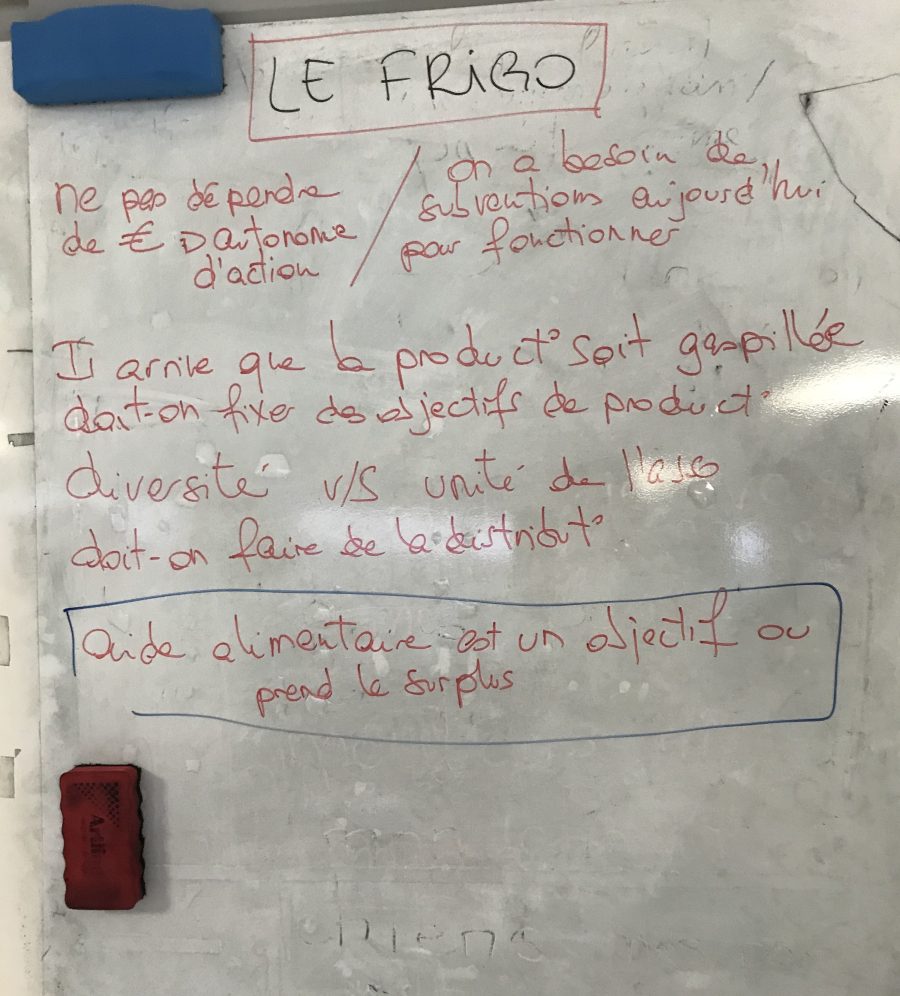 LE FRIGO
ne pas dépendre
de € D autonomie
d'action
/ on a besoin de
subventions aujourd'hui
pour fonctionner
Il arrive que la product° soit gaspillée
doit-on fixer des objectifs de product°
diversité v/s unité de l'asso
doit-on faire de la distribut°
Aide alimentaire est un objectif ou
prend le surplus